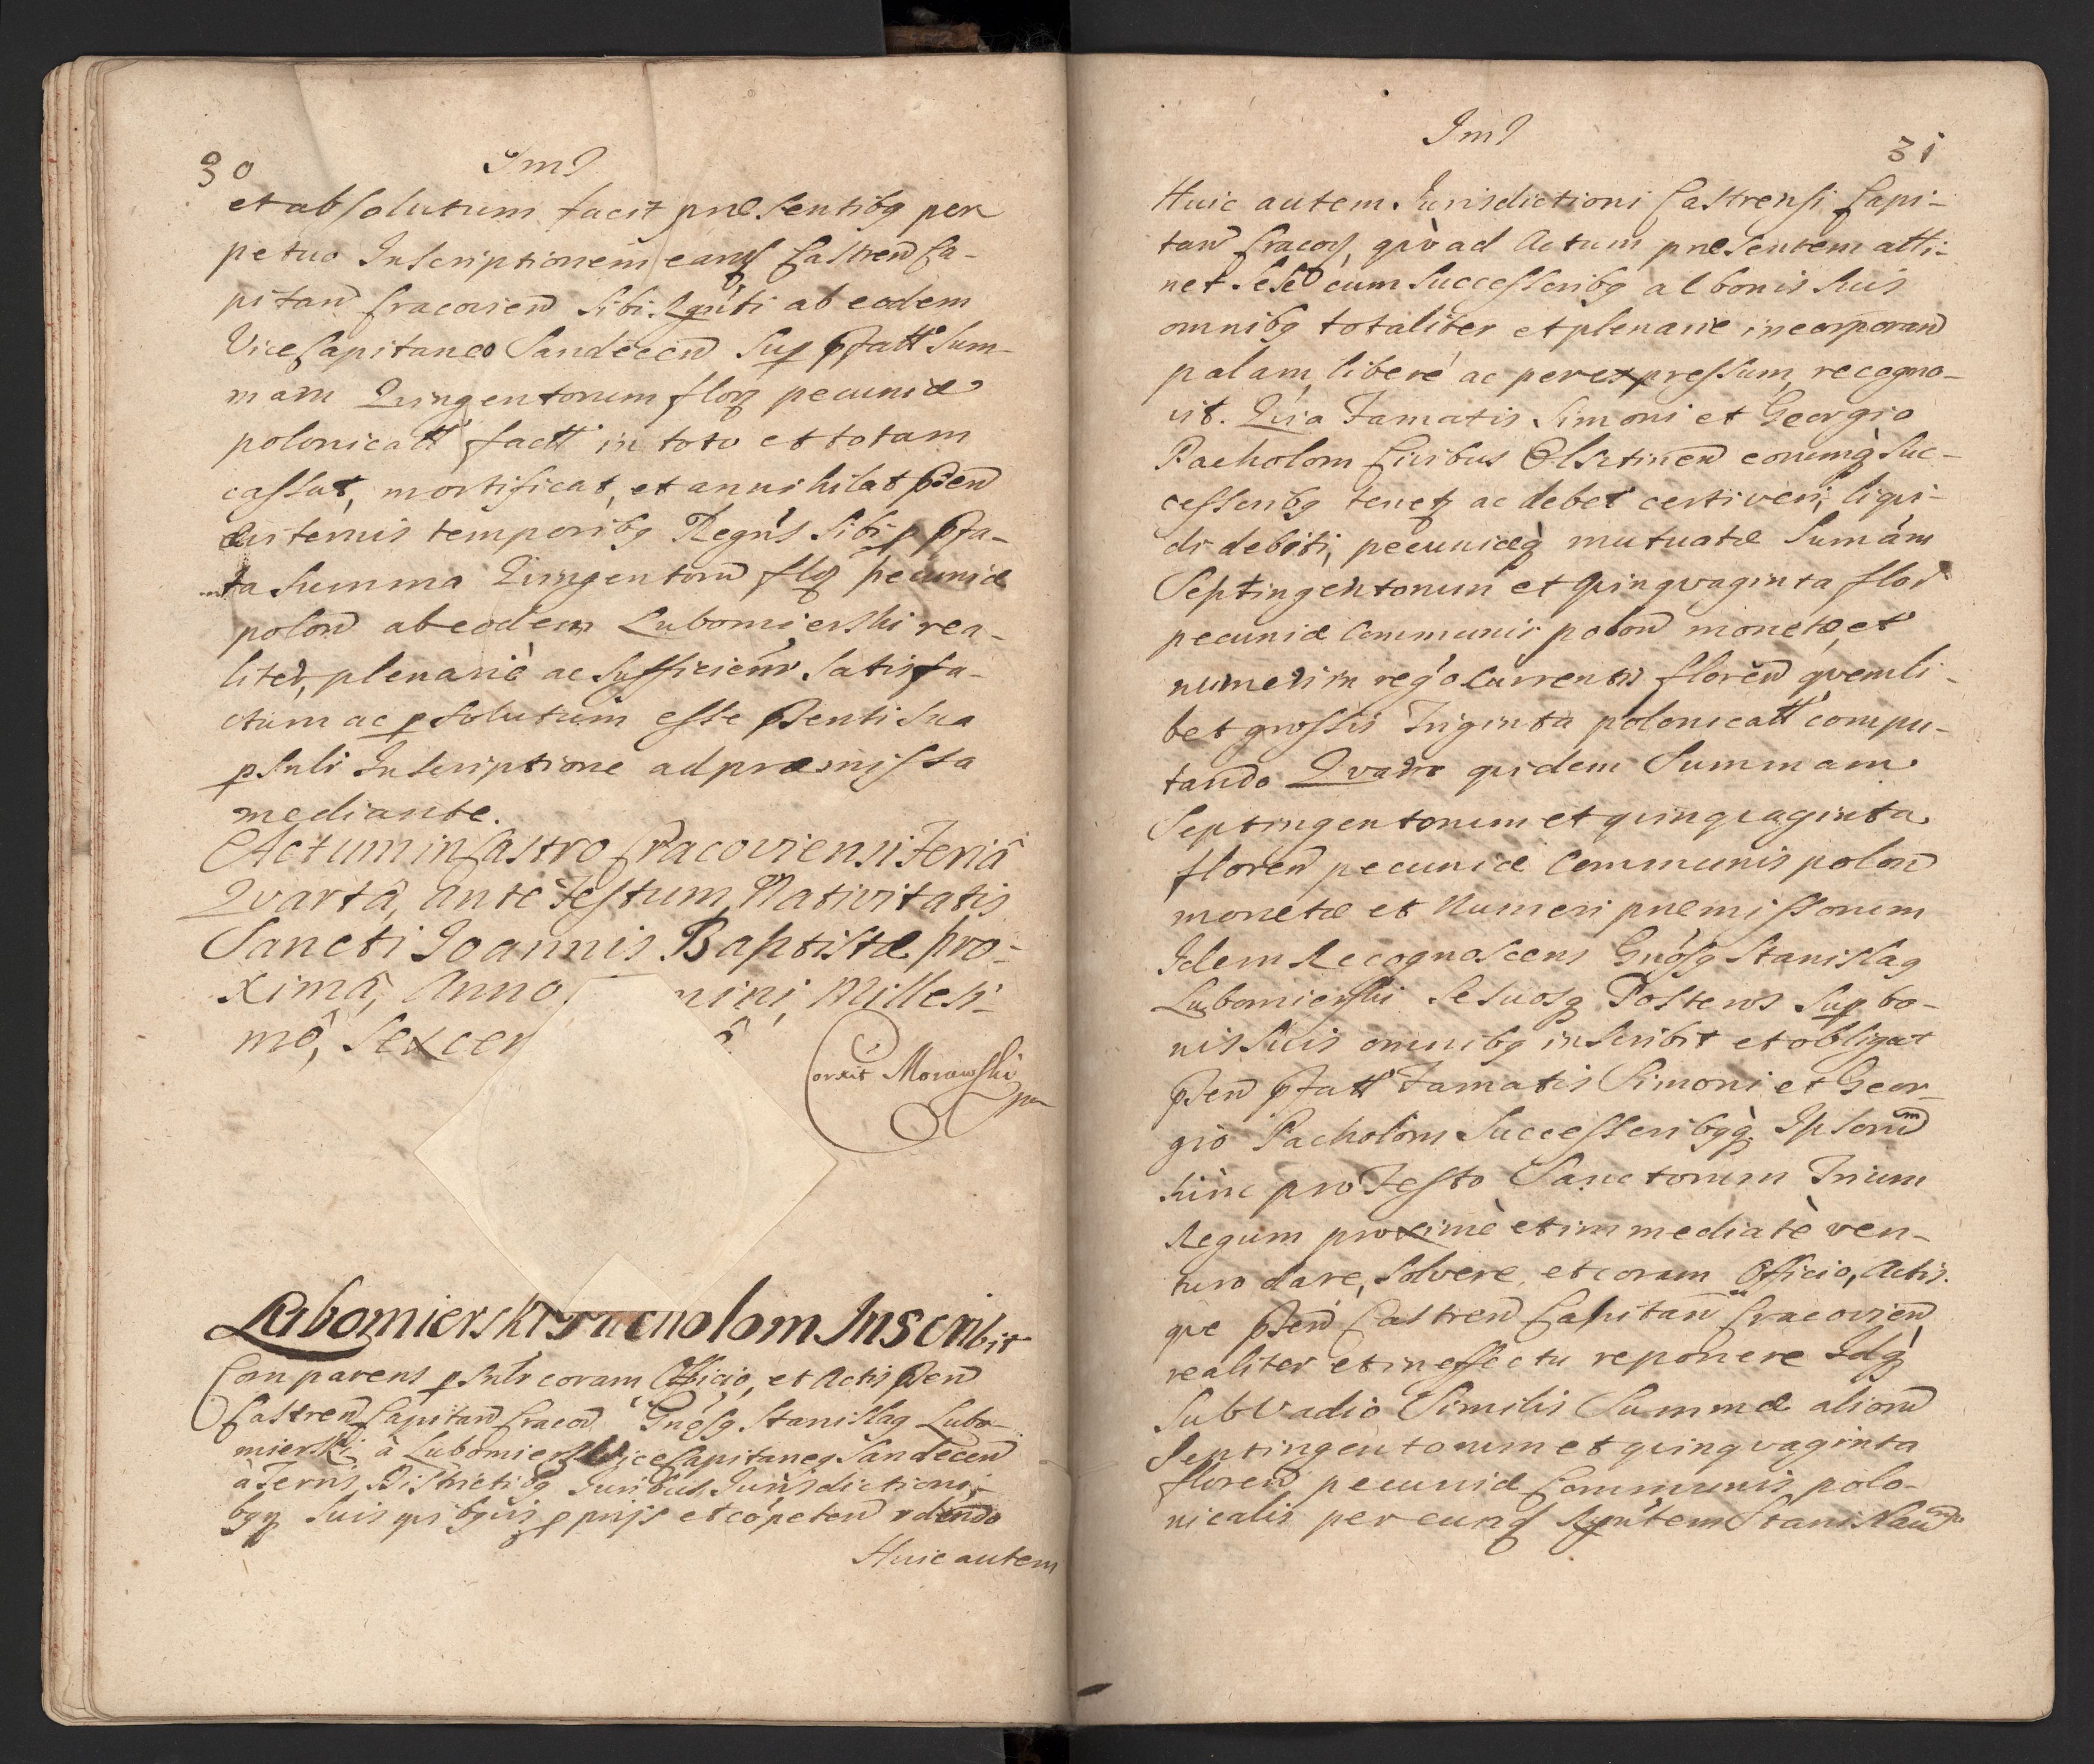 30
Im?
et absolutum facit præsentibg per
petuo Inscriptionem eang Castren Ca-
pitan Cracovien sibi Rgnti ab eodem
Vice Capitaneo Sandecen Sup pfatt Sum-
mam Quingentorum flor pecuniæ
polonicatt factt in toto et totam
cassat, mortificat, et annihilat psen
æuiternis temporibg Regns sibi p pfa-
ta summa Quingentoru flor pecuniæ
polon ab eodem Lubomierski rea-
liter, plenariè ac sufficientr satisfa-
ctum ac p solutum esse psenti sua
psnli Inscriptione ad præmissa
mediante.
Actum in Castro Cracoviensi Feriâ
Qvartâ, Ante Festum Nativitatis
Sancti Joannis Baptistæ pro-
ximâ, Anno mini, Millesi-
mô, Sexcen
Corrxit Morawski
mpa
Lubomierski Pacholom Inscribit
Comparens psnlr coram Officio, et Actis psen
Castren Capitan Cracov Gnosg Stanislag Lubo-
mierski à Lubomierz Vice Capitaneg Sandecen
à Terris, Districtibg Juribus Jurisdictioni-
bgq suis qvibgvis pprijs et cópeten rdendo
Huic autem
Im?
31
Huic autem Jurisdictioni Castrensi Capi-
tan Cracov, qvò ad Actum præsentem atti-
net sese cum Successoribg ac bonis suis
omnibg totaliter et plenarie incorporan
palam, liberé ac per expressum, recogno-
vit. Qvia Famatis Simoni et Georgio
Pacholom Civibus Olsztinen eorumq Suc-
cessoribg tenet ac debet certi veri, liqvi-
di debiti, pecuniæq mutuatæ Sumám
Septingentorum et qvinqvaginta flor
pecuniæ Communis polon monetæ, et
numeri in regó Currentis floren qvemli-
bet grossis Triginta polonicatt compu-
tando Qvam qvidem Summam
Septingentorum et qvinqvaginta
floren pecuniæ Communis polon
monetæ et Numeri præmissorum
Idem Recognoscens Gnósg Stanislag
Lubomierski se suosq Posteros Sup bo-
nis suis omnibg inscribit et obligat
psen pfatt Famatis Simoni et Geor-
gio Pacholom Successoribgq Ipsorum
hinc pro Festo Sanctorum Trium
Regum proximè et immediatè ven-
turo dare, solvere, et coram Officio, Actis-
qve psen Castren Capitan Cracovien
realiter et in effectu reponere Idq
sub Vadio Similis Summæ alioru
Septingentorum et qvinqvaginta
floren pecuniæ Communis polo-
nicalis per eund Rgntem Stanislaum